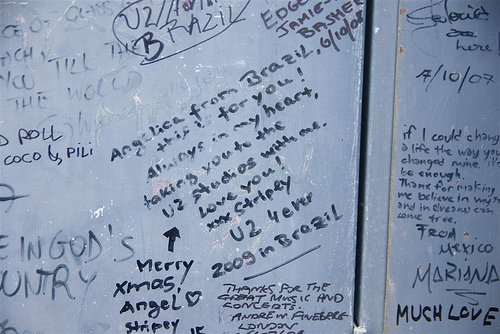 U2//
BRAZIL
EDGE
JAMIE
BASHER
6/10/08
YOU TILL THE
THE WORLD
D ROLL
COCO & PILI
Angelica from Brazil,
this is for you!
Always in my heart,
taking you to the
U2 studios with me.
Love you!
xxx stripey
U2 4ever
2009 in Brazil
Merry
xmas,
Angel ♡
stripey
E IN GOD'S
UNTRY
THANKS FOR THE
GREAT MUSIC AND
CONCERTS.
ANDREW
LONDON
was
here
7/10/07
if I could chang
a life the way you
changed mine, it'
be enough.
Thanx for making
me believe in myse
and in dreams can
come true.
FROM
MEXICO
MARIANA
MUCH LOVE